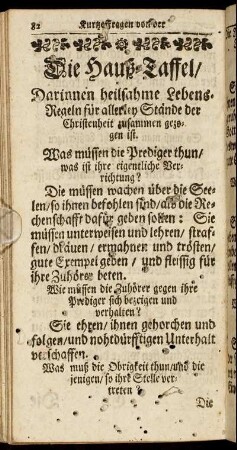 82 Kurtzeffragen von der
Die Hauß-Taffel/
Darinnen heilsahme Lebens-
Regeln für allerley Stände der
Christenheit zusammen gezo-
gen ist.
Was müssen die Prediger thun/
was ist ihre eigentliche Ver-
richtung?
Die müssen wachen über die See-
len/ so ihnen befohlen sind/ als die Re-
chenschafft dafür geben sollen: Sie
müssen unterweisen und lehren/ straf-
fen/ dräuen/ ermahnen und trösten/
gute Exempel geben/ und fleissig für
ihre Zuhörer beten.
Wie müssen die Zuhörer gegen ihre
Prediger sich bezeigen und
verhalten?
Sie ehren/ ihnen gehorchen und
folgen/ und nohtdürfftigen Unterhalt
verschaffen.
Was muß die Obrigkeit thun/ und die
jenigen/ so ihre Stelle ver-
treten?
Die